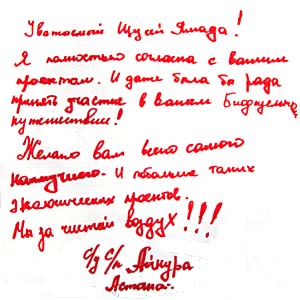 Уважаемый Шусей Ямада!
Я полностью согласна с вашим
проектом. И даже была бы рада
принять участие в вашем
путешествие!
Желаю вам всего самого
наилучшего. И побольше таких
экологических проектов.
Мы за чистый воздух!!!
Айнура
Астана.